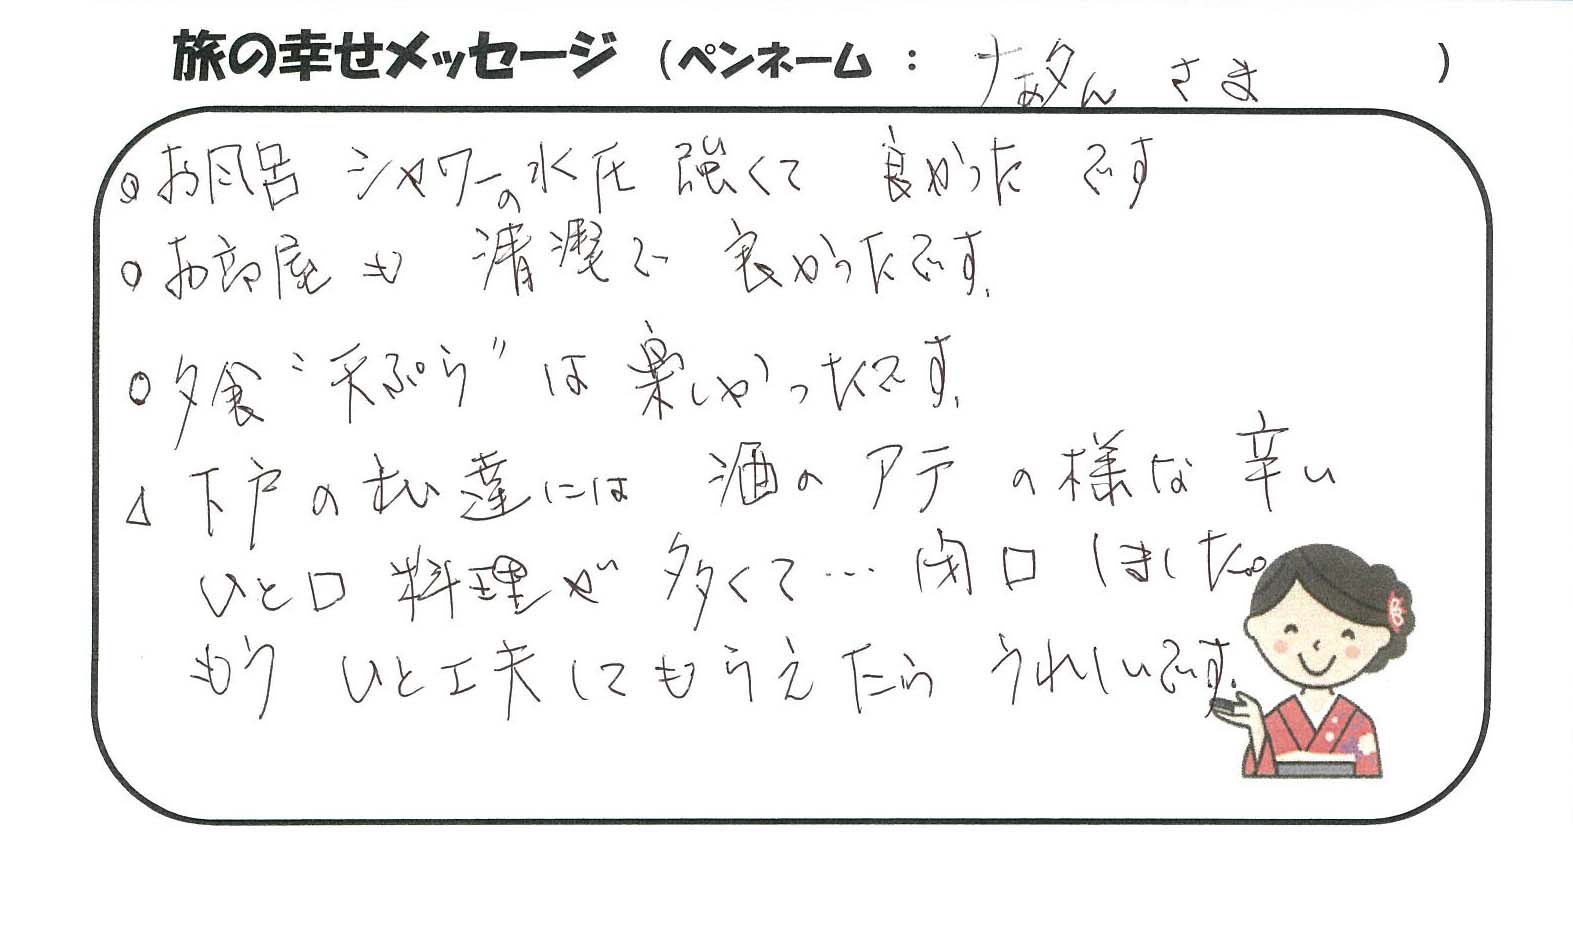 旅の幸せメッセージ (ペンネーム : さま )
◎お風呂 シャワーの水圧 強くて 良かったです
○お部屋も 清潔で 良かったです.
○夕食 "天ぷら" は 楽しかったです.
△下戸の私達には 酒のアテの様な辛い
ひと口料理が 多くて… 閉口しました。
もう ひと工夫してもらえたら うれしいです.